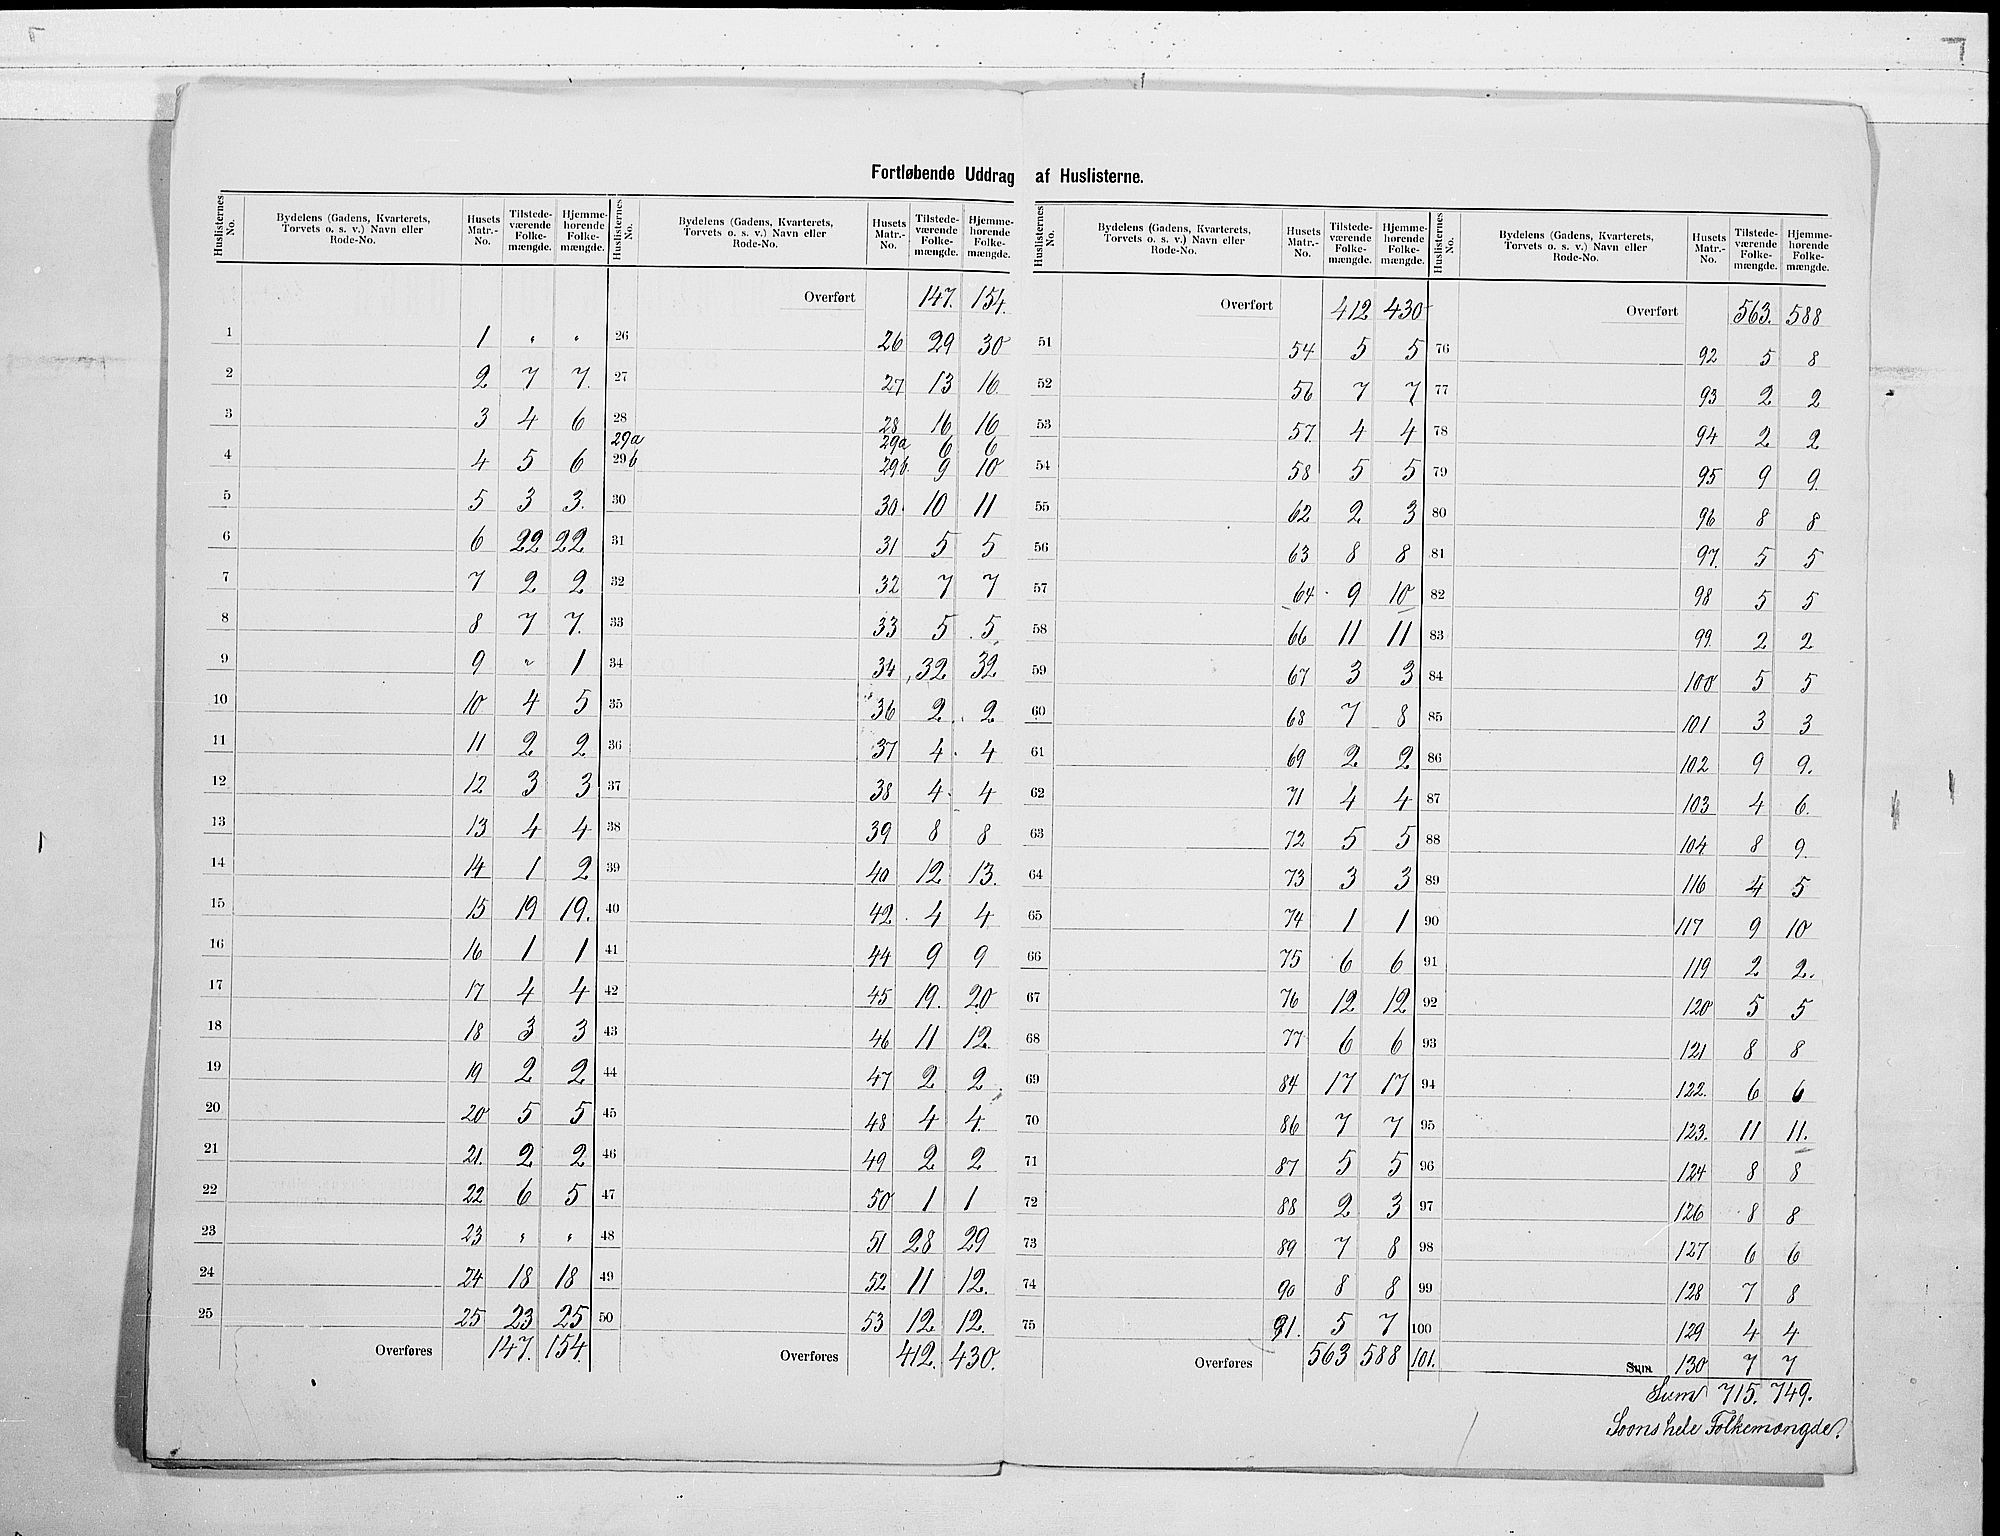 Fortløbende Uddrag af Huslisterne.
Huslisternes No. Bydelens (Gadens, Kvarterets, Torvets o. s. v.) Navn eller Rode-No. Husets Matr.-No. Tilstedeværende Folkemængde. Hjemmehørende Folkemængde.
1 1 " "
2 2 7 7.
3 3 4 6
4 4 5 6
5 5 3 3.
6 6 22 22
7 7 2 2
8 8 7 7.
9 9 " 1
10 10 4 5
11 11 2 2
12 12 3 3
13 13 4 4
14 14 1 2
15 15 19 19.
16 16 1 1
17 17 4 4
18 18 3 3
19 19 2 2
20 20 5 5
21 21. 2 2
22 22 6 5
23 23 " "
24 24 18 18
25 25 23 25
Overføres 147. 154.
Huslisternes No. Bydelens (Gadens, Kvarterets, Torvets o. s. v.) Navn eller Rode-No. Husets Matr.-No. Tilstedeværende Folkemængde. Hjemmehørende Folkemængde.
Overført 147. 154.
26 26 29 30
27 27 13 16.
28 28 16 16
29a 29a 6 6
29b 29b. 9 10
30 30. 10 11
31 31 5 5
32 32 7 7
33 33 5 5
34 34 32 32
35 36 2 2
36 37 4 4
37 38 4 4
38 39 8 8
39 40 12 13.
40 42 4 4
41 44 9 9
42 45 19. 20
43 46 11 12.
44 47 2 2
45 48 4 4
46 49 2 2
47 50 1 1
48 51 28 29
49 52 11 12.
50 53 12 12.
Overføres 412. 430.
Huslisternes No. Bydelens (Gadens, Kvarterets, Torvets o. s. v.) Navn eller Rode-No. Husets Matr.-No. Tilstedeværende Folkemængde. Hjemmehørende Folkemængde.
Overført 412 430
51 54 5 5
52 56 7 7
53 57 4 4
54 58 5 5
55 62 2 3
56 63 8 8
57 64 9 10
58 66 11 11
59 67 3 3
60 68 7 8
61 69 2 2
62 71 4 4
63 72 5 5
64 73 3 3
65 74 1 1
66 75 6 6
67 76 12 12
68 77 6 6
69 84 17 17
70 86 7 7
71 87 5 5
72 88 2 3
73 89 7 8
74 90 8 8
75 91. 5 7
Overføres 563 588
Huslisternes No. Bydelens (Gadens, Kvarterets, Torvets o. s. v.) Navn eller Rode-No. Husets Matr.-No. Tilstedeværende Folkemængde. Hjemmehørende Folkemængde.
Overført 563. 588
76 92 5 8
77 93 2 2
78 94 2 2
79 95 9 9.
80 96 8 8
81 97. 5 5
82 98 5 5
83 99. 2 2
84 100 5 5
85 101 3 3
86 102 9 9.
87 103 4 6.
88 104 8 9.
89 116 4 5
90 117 9 10
91 119 2 2.
92 120 5 5
93 121 8 8
94 122. 6 6
95 123. 11 11.
96 124 8 8
97 126 8 8
98 127 6 6
99 128 7 8
100 129 4 4
101. Sum 130 7 7
Sum 715. 749.
Soons hele Folkemængde.